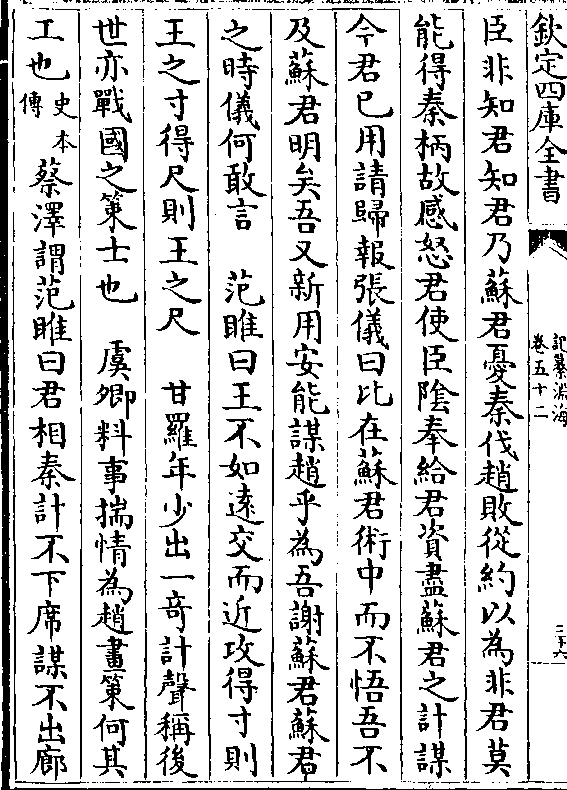 欽定四庫全書
記纂淵海
卷五十二
臣非知君知君乃蘇君憂秦伐趙敗從約以為非君莫
能得秦柄故感怒君使臣陰奉給君資盡蘇君之計謀
今君已用請歸報張儀曰此在蘇君術中而不悟吾不
及蘇君明矣吾又新用安能謀趙乎為吾謝蘇君蘇君
之時儀何敢言 范睢曰王不如逺交而近攻得寸則
王之寸得尺則王之尺 甘羅年少出一竒計聲稱後
世亦戰國之策士也 虞卿料事揣情為趙畫策何其
工也史本傳 蔡澤謂范睢曰君相秦計不下席謀不出廊